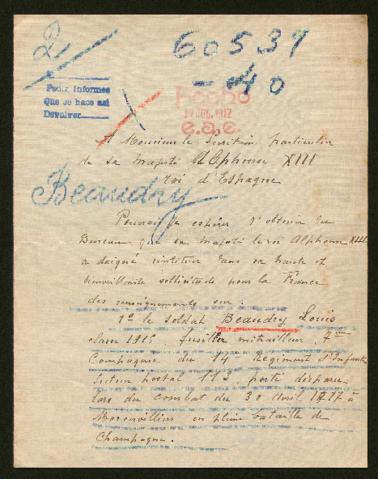 2
60539
- 40
Pedir informes
Que se hace así
Devolver
hecho
e.a.e.
A Monsieur le Secrétaire particulier
de Sa Majesté Alphonse XIII
roi d'Espagne
Beaudry
Pourrais-je espérer d'obtenir du
Bureau que sa majesté le roi Alphonse XIII
a daigné instituer dans sa haute et
bienveillante sollicitude pour la France
des renseignements sur :
1º le soldat Beaudry Louis
classe 1915, fusilier mitrailleur, 7ème
Compagnie du 14 Régiment d'Infanterie
Secteur postal 113, porté disparu
lors du combat du 30 Avril 1917 à
Moronvilliers en pleine bataille de
Champagne.